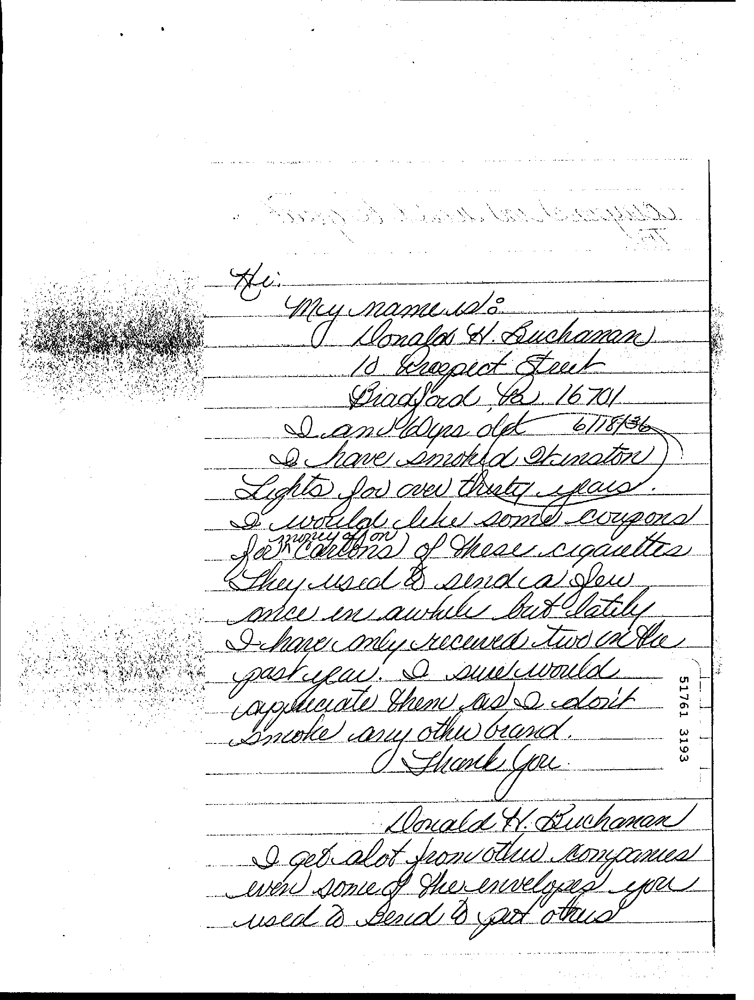 Hi:
My name is:
Donald H. Buchanan
10 Prospect Street
Bradford, Pa. 16701
I am 60 yrs old 6/18/36
I have smoked Winston
Lights for over thirty years.
I would like some coupons
money off on
for (Cartons) of these cigarettes
They used to send a few
once in awhile but lately
I have only received two in the
past year. I sure would
appreciate them as I don't
smoke any other brand.
Thank You
51761 3193
Donald H. Buchanan
I get alot from other companies
even some of the envelopes you
used to send to put others